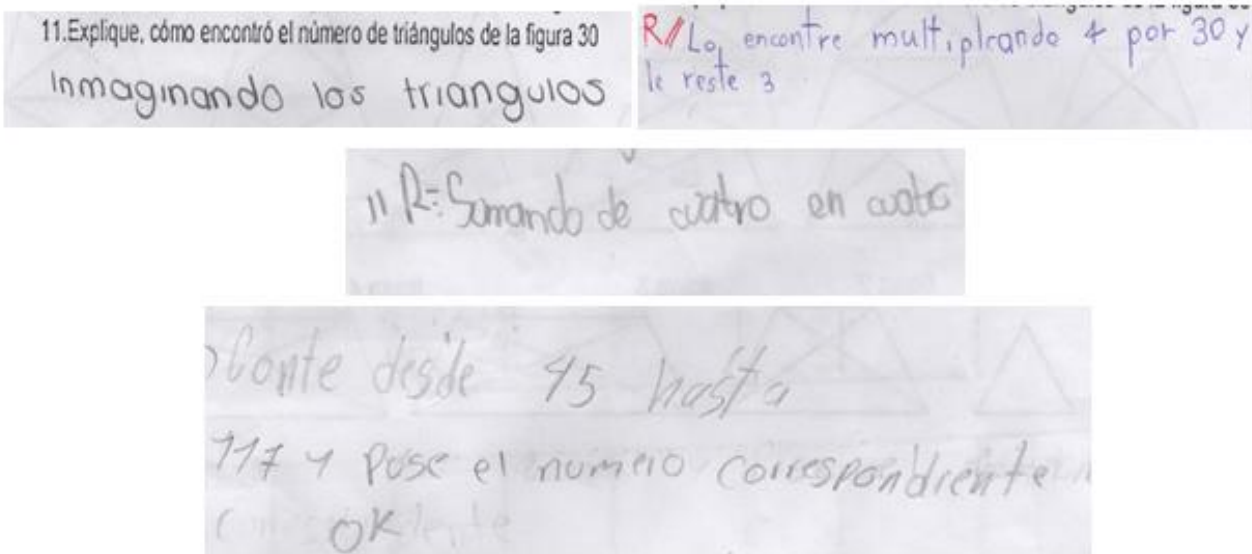 11.Explique, cómo encontró el número de triángulos de la figura 30
Inmaginando los triangulos
R// Lo encontre multiplicando 4 por 30 y
le reste 3
11 R= Sumando de cuatro en cuatro
Conte desde 45 hasta
117 y puse el numero correspondiente
OK